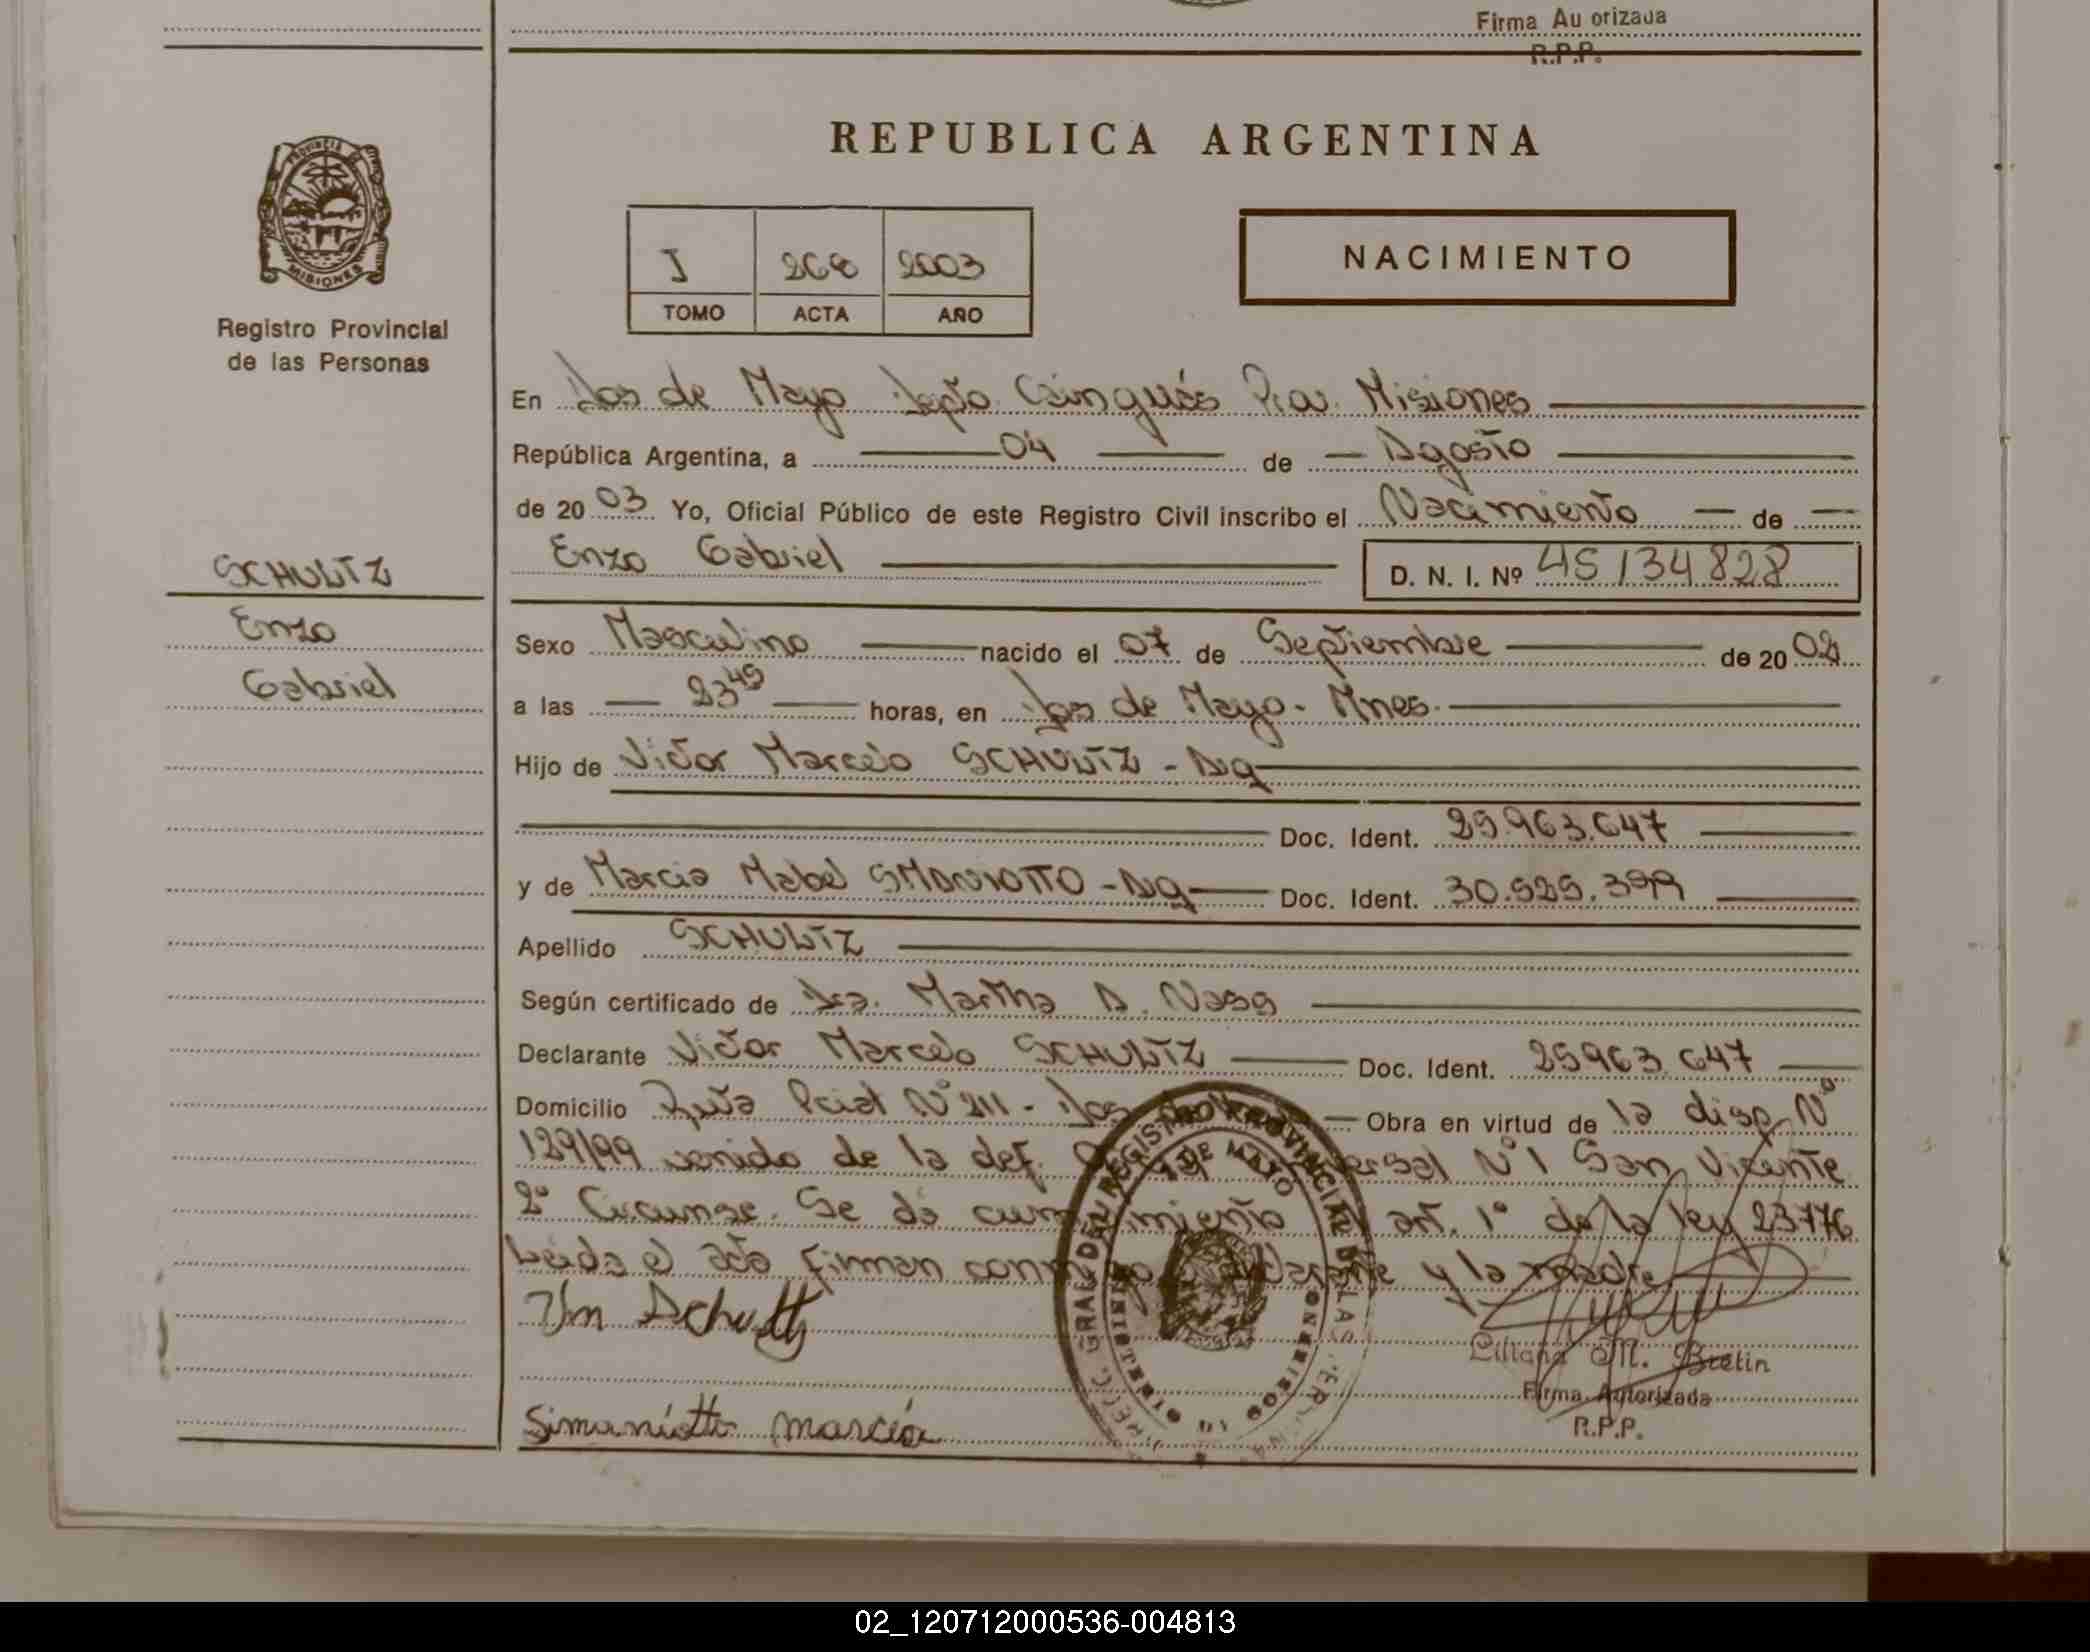 Firma Au orizada
R.P.P.
REPUBLICA ARGENTINA
PROVINCIA DE
MISIONES
Registro Provincial
de las Personas
J 268 2003
TOMO ACTA AÑO
NACIMIENTO
En Dos de Mayo Depto. Cainguás Prov. Misiones
República Argentina, a 04 de Agosto
de 2003 Yo, Oficial Público de este Registro Civil inscribo el Nacimiento de
Enzo Gabriel D. N. I. Nº 45134828
SCHULTZ
Enzo
Gabriel
Sexo Masculino nacido el 07 de Septiembre de 2002
a las 23 45 horas, en Dos de Mayo. Mnes.
Hijo de Victor Marcelo SCHULTZ - Arg
Doc. Ident. 25.963.647
y de Marcia Mabel SIMONIOTTO - Arg Doc. Ident. 30.525.399
Apellido SCHULTZ
Según certificado de Dra. Martha A.
Declarante Victor Marcelo SCHULTZ Doc. Ident. 25963.647
Domicilio Ruta Pcial Nº 211 - Dos Obra en virtud de la disp. Nº
129/99 venido de la def. Nº 1 San Vicente
2º Circunsc. Se dá cumplimiento art. 1º de la ley 23776
Leida el acto firman y la madre
Vm Schultz
Simoniotto Marcia
Liliana M. Bretin
Firma Autorizada
R.P.P.
02_120712000536-004813